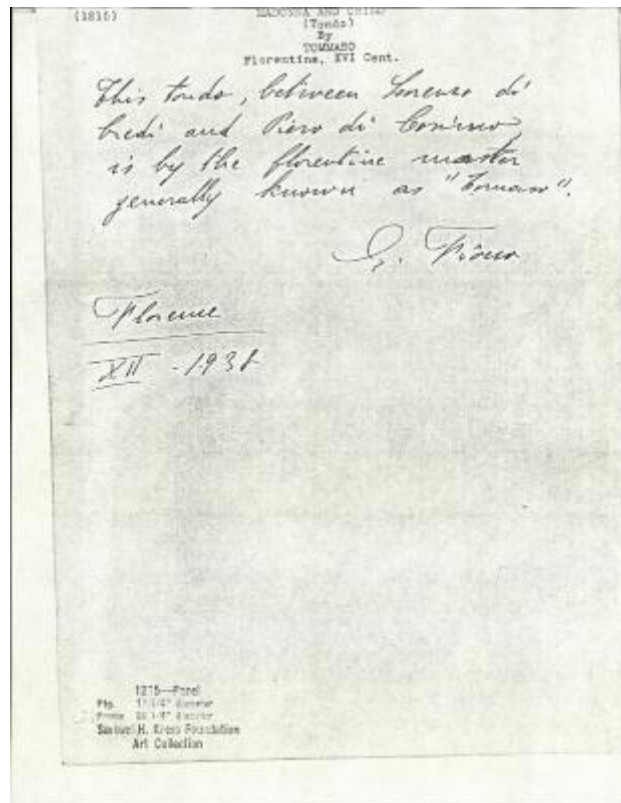 (1815)
MADONNA AND CHILD
(Tondo)
By
TOMMASO
Florentine, XVI Cent.
This tondo, between Lorenzo di
Credi and Piero di Cosimo
is by the florentine master
generally known as "Tomaso".
G. Fiocco
Florence
XII - 1938
Panel
Ptg. diameter
Frame diameter
Samuel H. Kress Foundation
Art Collection